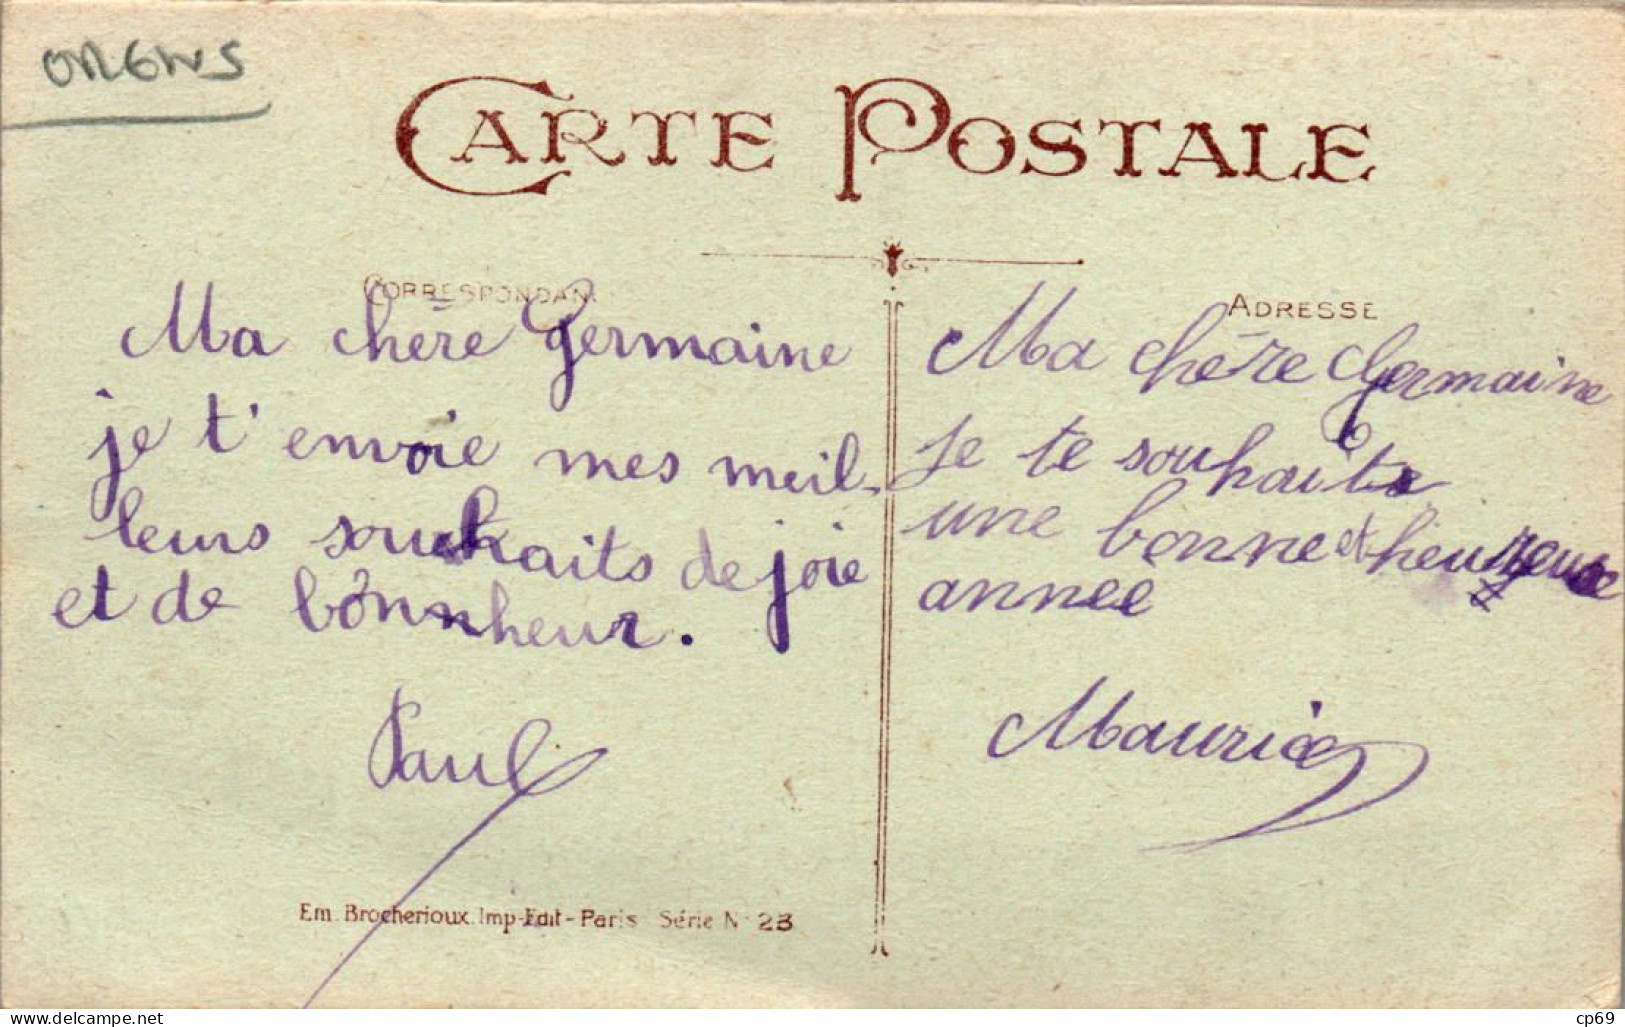 CARTE POSTALE
CORRESPONDAN
ADRESSE
Ma chère Germaine
je t'envoie mes meil-
leurs souhaits de joie
et de bonnheur.
Paul
Ma chère Germaine
Je te souhaite
une bonne et heureuse
année
Maurice
Em. Brocherioux. Imp-Edit-Paris Série N° 23
www.delcampe.net
cp69